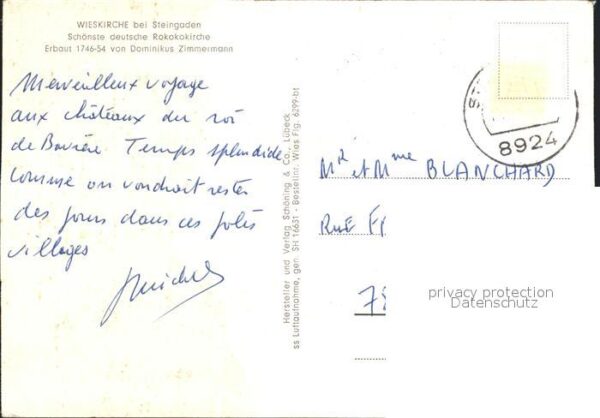 WIESKIRCHE bei Steingaden
Schönste deutsche Rokokokirche
Erbaut 1746-54 von Dominikus Zimmermann
Merveilleux voyage
aux châteaux du roi
de Bavière. Temps splendide
Comme on voudrait rester
des jours dans ces jolis
villages
Hersteller und Verlag Schöning & Co., Lübeck
ss Luftaufnahme, gen. SH 16631 - Bestellnr. Wies Flg. 6299-bt
8924
Mr et Mme BLANCHARD
RUE
privacy protection
Datenschutz